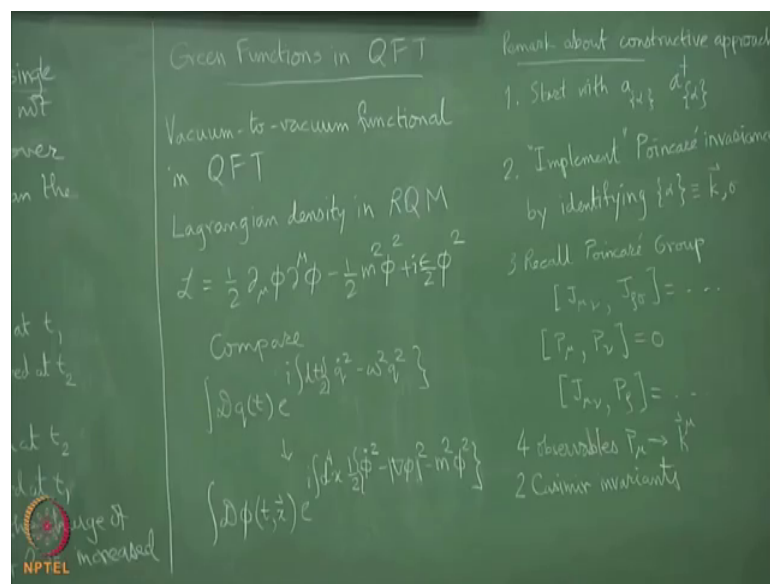 single
not
over
an the
at t₁
ed at t₂
at t₂
d at t₁
of
increased
Green Functions in QFT
Vacuum-to-vacuum functional
in QFT
Lagrangian density in RQM
ℒ = 1/2 ∂_μ φ ∂^μ φ - 1/2 m² φ² + i ε/2 φ²
Compare
∫ 𝒟q(t) e^{i∫dt 1/2 {q̇² - ω² q²}}
↓
∫ 𝒟φ(t, x⃗) e^{i∫d⁴x 1/2 {φ̇² - |∇φ|² - m² φ²}}
Remark about constructive approach
1. Start with a_{α} a†_{α}
2. "Implement" Poincaré invariance
by identifying {α} ≡ k⃗, σ
3 Recall Poincaré Group
[J_{μν}, J_{ρσ}] = ....
[P_μ, P_ν] = 0
[J_{μν}, P_ρ] = ...
4 observables P_μ → k^μ
2 Casimir invariants
NPTEL